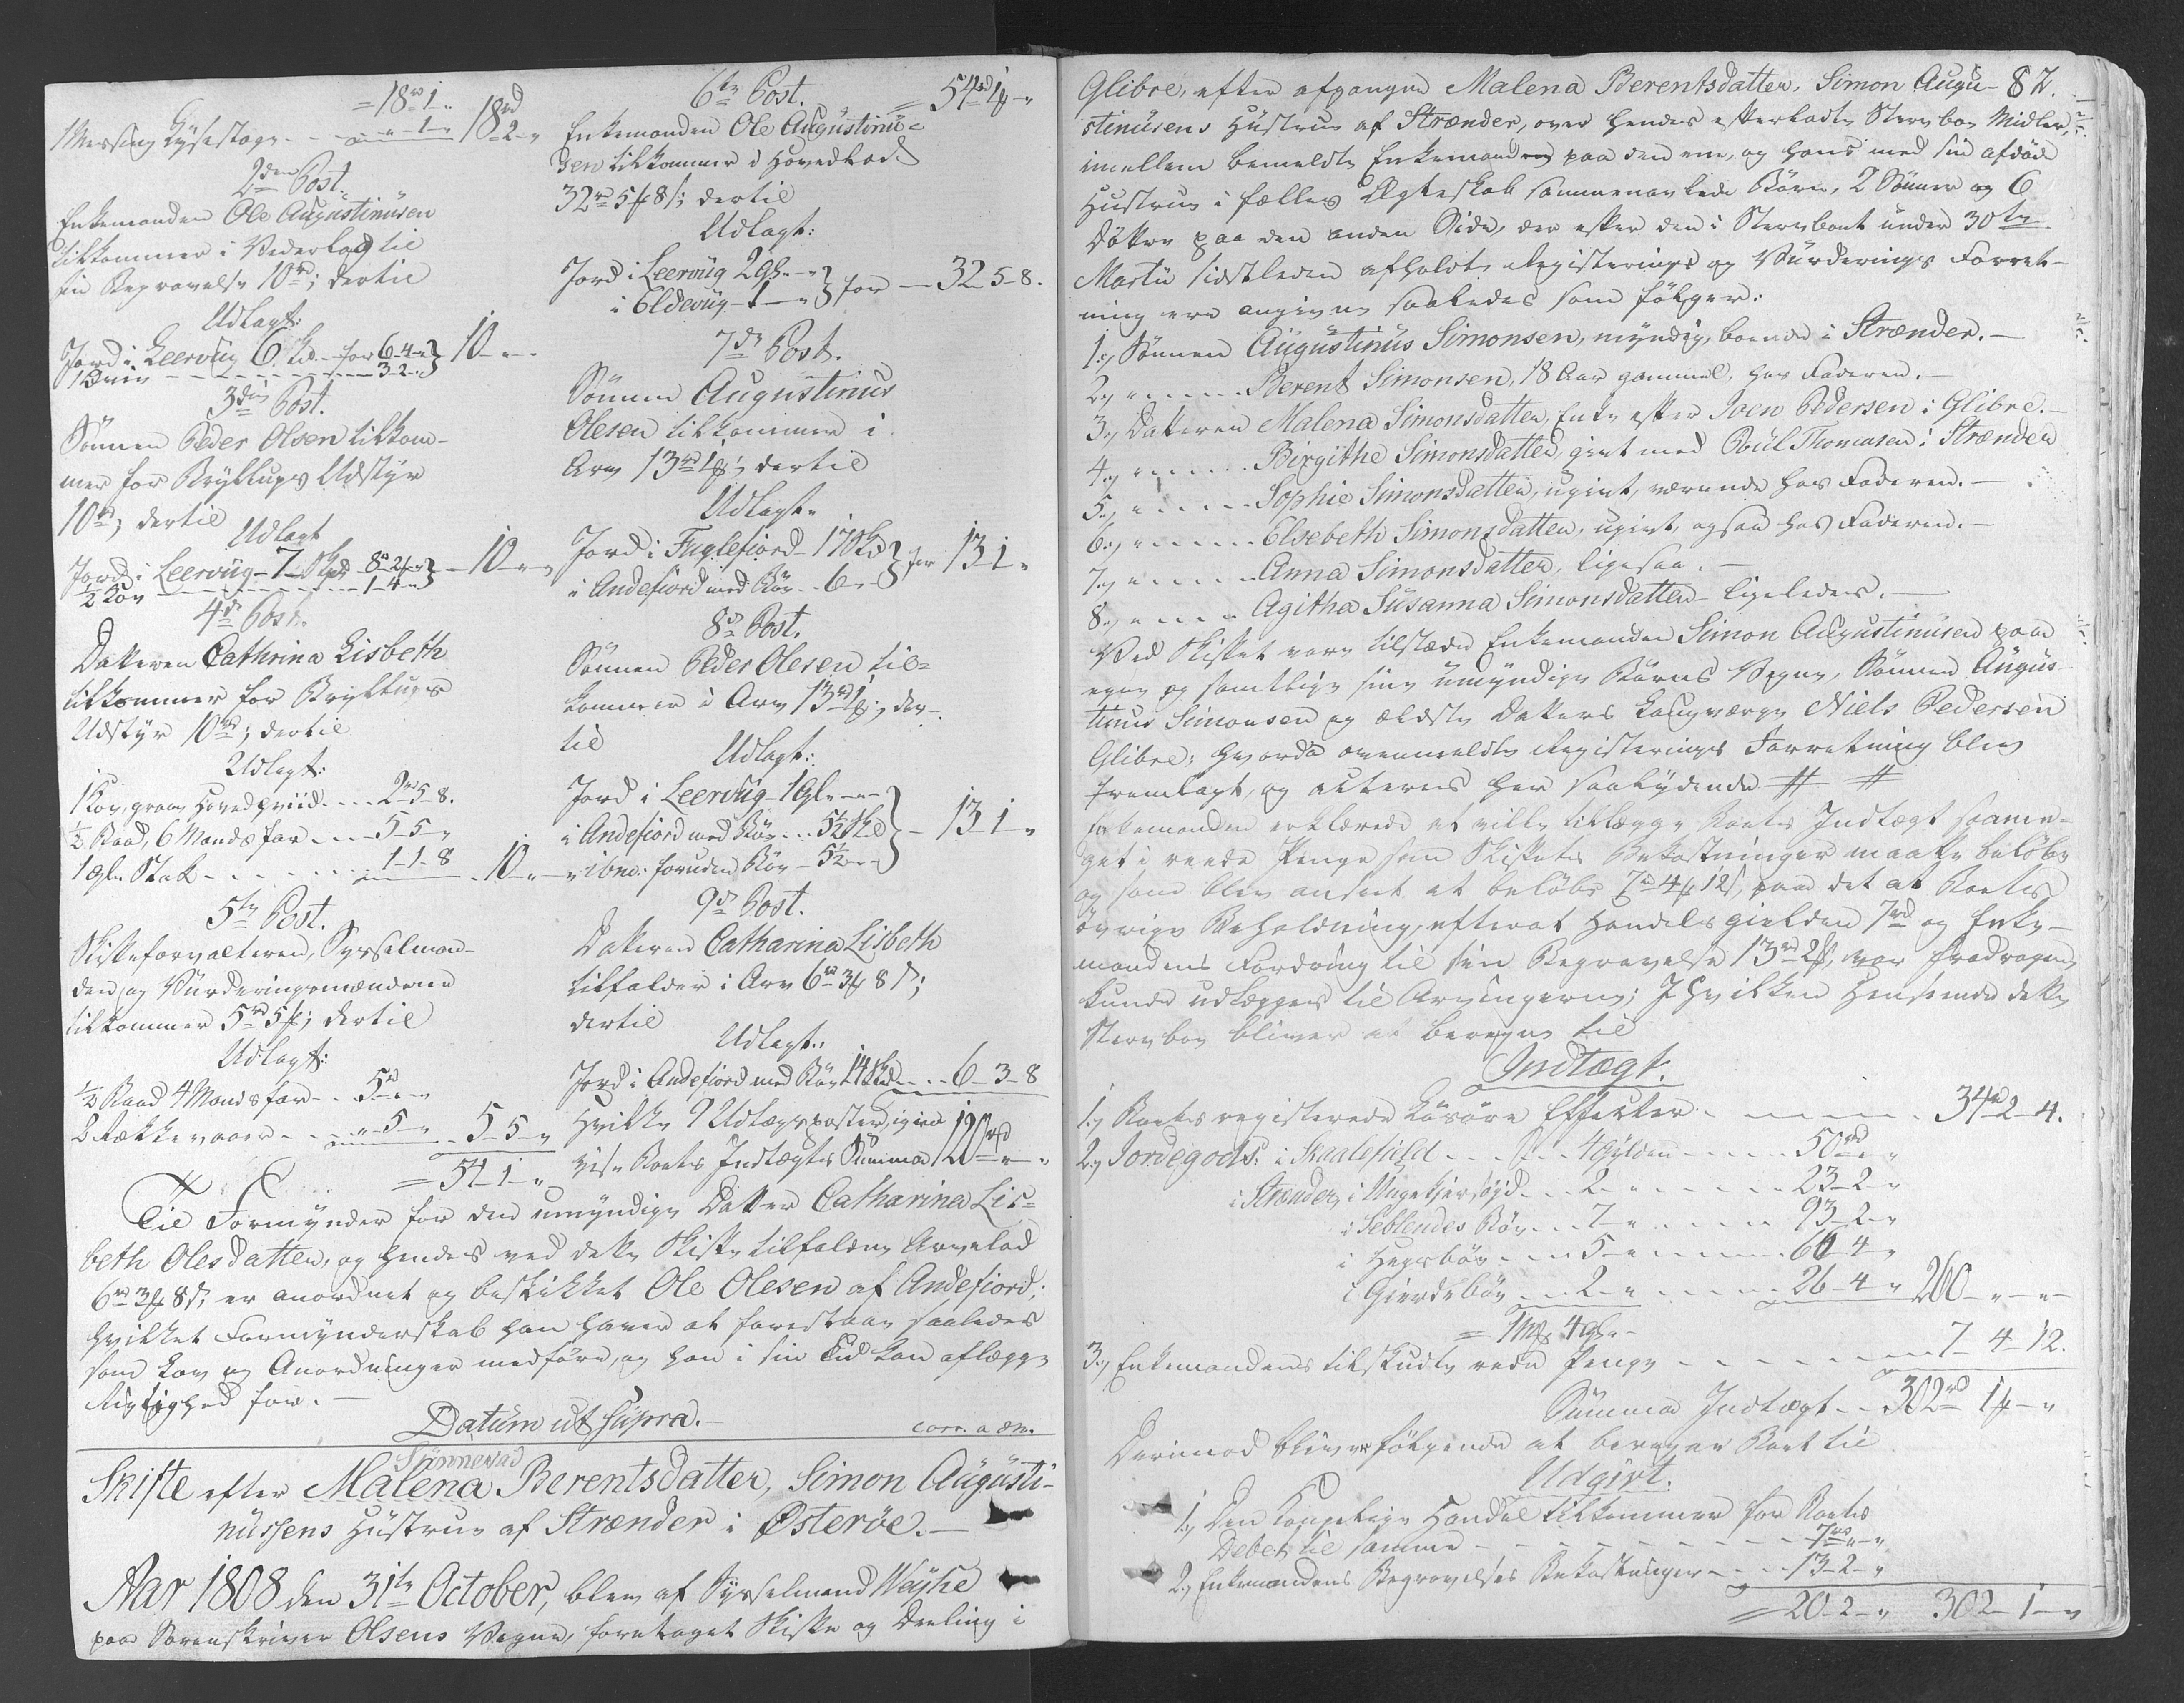 = 18rd 1 "
1 Messing Lysestage - - " - 1 - " 18rd 2 - "
2den Post.
Enkemanden Ole Augustinusen
tilkommer i Vederlag til
sin Begravelse 10rd; dertil
Udlagt:
Jord i Leervüg 6 Sk. for 6-4-"} 10 - " - "
- - - - 3-2-"
3die Post.
Sönnen Peder Olsen tilkom-
mer for Bryllups Udstyr
10rd; dertil
Udlagt
Jord i Leervüg - 7 Skd 8-2-"} 10 - " - "
½ Koe - - - - 1-4-"
4de Post.
Datteren Cathrina Lisbeth
tilkommer for Bryllups
Udstyr 10rd; dertil
Udlagt:
1 Koe, graae Hovedhviid - - 2rd 5-8.
½ Baad, 6 Mands far - - 5-5-"
1 gl. Stak - - - 1-1-8 10 - " - "
5te Post.
Skifteforvalteren, Sysselman-
den og Vurderingsmændene
tilkommer 5rd 5ß; dertil
Udlagt:
½ Baad 4 Mands far - - 5rd " - "
- - " - 5 - " 5-5-"
= 54-1-"
6te Post. = 54rd 1ß - "
Enkemanden Ole Augustinu=
sen tilkommer i Hovedlod
32rd 5ß 8s; dertil
Udlagt:
Jord i Leervüg 2 gl. - "} for - 32-5-8.
i Eldevüg - 1 - "
7de Post.
Sönnen Augustinus
Olesen tilkommer i
Arv 13rd 1ß; dertil
Udlagt.
Jord i Fuglefiord - 17 Skd} for 13-1-"
i Andefiord med Böe - 6 - "
8de Post.
Sönnen Peder Olesen til=
kommer i Arv 13rd 1ß; der-
til
Udlagt:
Jord i Leervüg - 1 gl. - "
i Andefiord med Böe - 5½ Skd} - 13-1-"
" ibd: foruden Böe - 5½ - "
9de Post.
Datteren Catharina Lisbeth
tilfalder i Arv 6rd 3ß 8s;
dertil
Udlagt:
Jord i Andefiord med Böe 14 Skd - - 6-3-8
Hvilke 9 Udlægsposter, igien
vise Boets Indtægts Summa 120rd " - "
Til Formynder for den umyndige Datter Catharina Lis=
beth Olesdatter, og hendes ved dette Skifte tilfaldne Arvelod
6rd 3ß 8s, er anordnet og beskikket Ole Olesen af Andefiord;
hvilket Formynderskab han haver at forestaae saaledes
som Lov og Anordninger medföre, og han i sin Tid kan aflægge
Rigtighed for. -
Datum ut supra. -
corr. a den.
Sünneva
Skifte efter Malena Berentsdatter, Simon Augusti-
nussens Hüstrue af Strænder i Østeröe. -
Aar 1808 den 31te October, blev af Sysselmand Weyhe
paa Sorenskriver Olsens Vegne, foretaget Skifte og Deeling i
82.
Glibre, efter afgangne Malena Berentsdatter, Simon Augu-
stinüsens Hüstrue af Strænder, over hendes efterladte Sterv boe Midler,
imellem bemeldte Enkemanden paa den ene, og hans med sin afdöde
Hustrue i fælles Ægteskab sammenavlede Börn, 2 Sönner og 6
Döttre paa den anden Side, der efter den i Stervboet under 30te
Martii sidstleden afholdte Registerings og Vurderings Forret-
ning ere angivne saaledes som fölger:
1.) Sönnen Augustinus Simonsen, myndig, boende i Strænder. -
2.) " - - - Berent Simonsen, 18 Aar gammel, hos Faderen. -
3.) Datteren Malena Simonsdatter, Enke efter Joen Pedersen i Glibre. -
4.) " - - - Birgithe Simonsdatter, givt med Poul Thomasen i Strænder
5.) " - - - Sophie Simonsdatter, ugivt, værende hos Faderen. -
6.) " - - - Elsebeth Simonsdatter, ugivt, ogsaa hos Faderen. -
7.) " - - - Anna Simonsdatter, ligesaa. -
8.) " - - - Agitha Susanna Simonsdatter - ligeledes. -
Ved Skiftet vare tilstæde Enkemanden Simon Augustinusen paa
egne og samtlige sine umyndige Börns Vegne, Sönnen Augus-
tinus Simonsen og ældste Datters Laugværge Niels Pedersen
Glibre; hvorda ovenmeldte Registerings Forretning blev
fremlagt, og acteres her saalydende # #
Enkemanden erklærede at ville tillægge Boets Indtægt saame-
get i reede Penge som Skiftets Bekostninger maatte belöbe
og som blev anseet at belöbe 7rd 4ß 12s, paa det at Boets
övrige Beholdning, efterat Handelsgielden 7rd og Enke-
mandens Fordring til sin Begravelse 13rd 2ß, var fradragen,
kunde udlægges til Arvingerne; I hvilken Henseende dette
Stervboe bliver at beregne til
Indtægt.
1.) Boets registerede Lösöre Effecter - - - - 34rd 2-4.
2.) Jordegods: i Skaalefield - - - 4 Gylden - - - 50rd " - "
i Strænder, i - - 2 - " - - - 23-2-"
i Seblendes Böe - - 7 - " - - - 93-2-"
i Hegsböe - - 5 - " - - - 66-4-"
i Gierdeböe - - 2 - " - - - 26-4-" 260 - " - "
= 1 mk 4 gl. -
3.) Enkemandens tilskudte reede Penge - - - - 7-4-12.
Summa Indtægt - - 302rd 1ß - "
Derimod bliver fölgende at beregne Boet til
Udgivt.
1.) Den Kongelige Handel tilkommer for Boets
Debet til samme - - - - 7rd " - "
2.) Enkemandens Begravelses Bekostninger - - 13-2-"
= 20-2-" 302-1-"